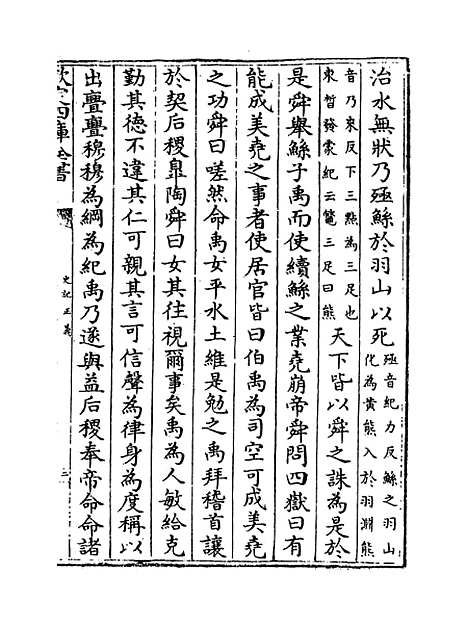 治水無狀乃殛鯀於羽山以死殛音紀力反鯀之羽山化為黄熊入於羽淵熊
音乃來反下三點為三足也束晳發蒙紀云鼈三足曰熊天下皆以舜之誅為是於
是舜舉鯀子禹而使續鯀之業堯崩帝舜問四嶽曰有
能成美堯之事者使居官皆曰伯禹為司空可成美堯
之功舜曰嗟然命禹女平水土維是勉之禹拜稽首讓
於契后稷臯陶舜曰女其往視爾事矣禹為人敏給克
勤其德不違其仁可親其言可信聲為律身為度稱以
出亹亹穆穆為綱為紀禹乃遂與益后稷奉帝命命諸
欽定四庫全書
史記正義
三